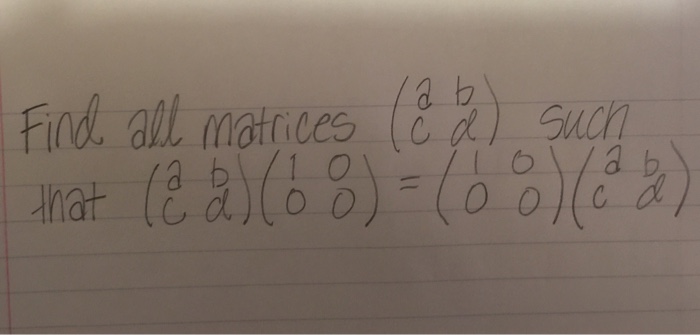 Find all matrices (a b
c d) such
that (a b
c d)(1 0
0 0) = (1 0
0 0)(a b
c d)